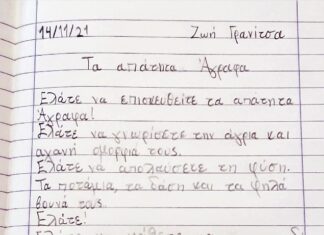 14/11/21 Ζωή Γρανίτσα
Τα απάτητα Άγραφα
Ελάτε να επισκευθείτε τα απάτητα
Άγραφα!
Ελάτε να γνωρίσετε την άγρια και
αγανή ομορφιά τους.
Ελάτε να απολαύσετε τη φύση.
Τα ποτάμια, τα δάση και τα ψηλά
βουνά τους.
Ελάτε!